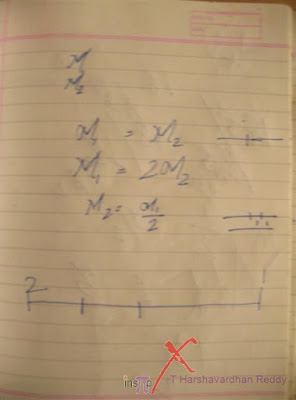 M₁
M₂
M₁ = M₂
M₁ = 2M₂
M₂ = M₁/2
2
T Harshavardhan Reddy